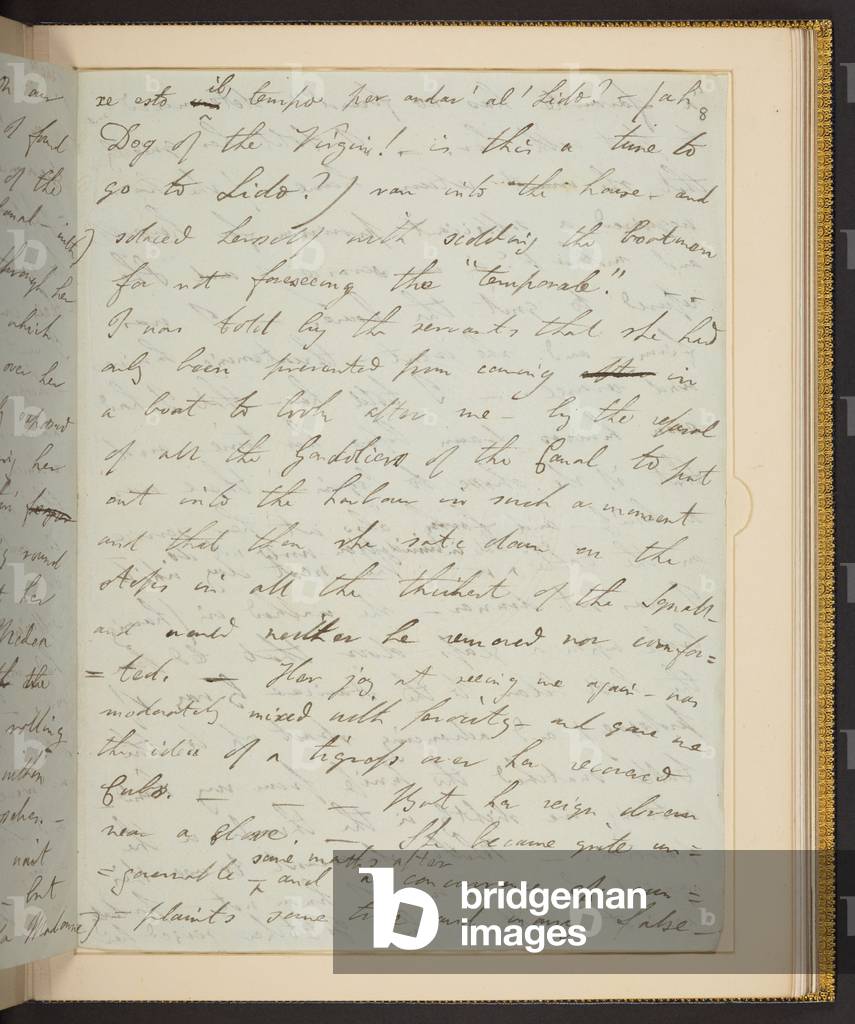 xe esto il tempo per andar' al' Lido? – (ah
8
Dog of the Virgin! – is this a time to
go to Lido?) ran into the house – and
solaced herself with scolding the boatmen
for not foreseeing the "temporale." – –
I was told by the servants that she had
only been prevented from coming in
a boat to look after me – by the refusal
of all the Gondoliers of the Canal to put
out into the harbour in such a moment
and that then she sate down on the
steps in all the thickest of the Squall –
and would neither be removed nor comfor=
=ted. — Her joy at seeing me again – was
moderately mixed with ferocity – and gave me
the idea of a tigress over her recovered
Cubs. — — — But her reign drew
near a close. — She became quite un=
some months after
=governable – and a concurrence of com=
=plaints some true and many false –
on air
of fond
of the
with)
through her
which
over her
her
round
her
the
rolling
wait
but
Madonna)
bridgeman
images